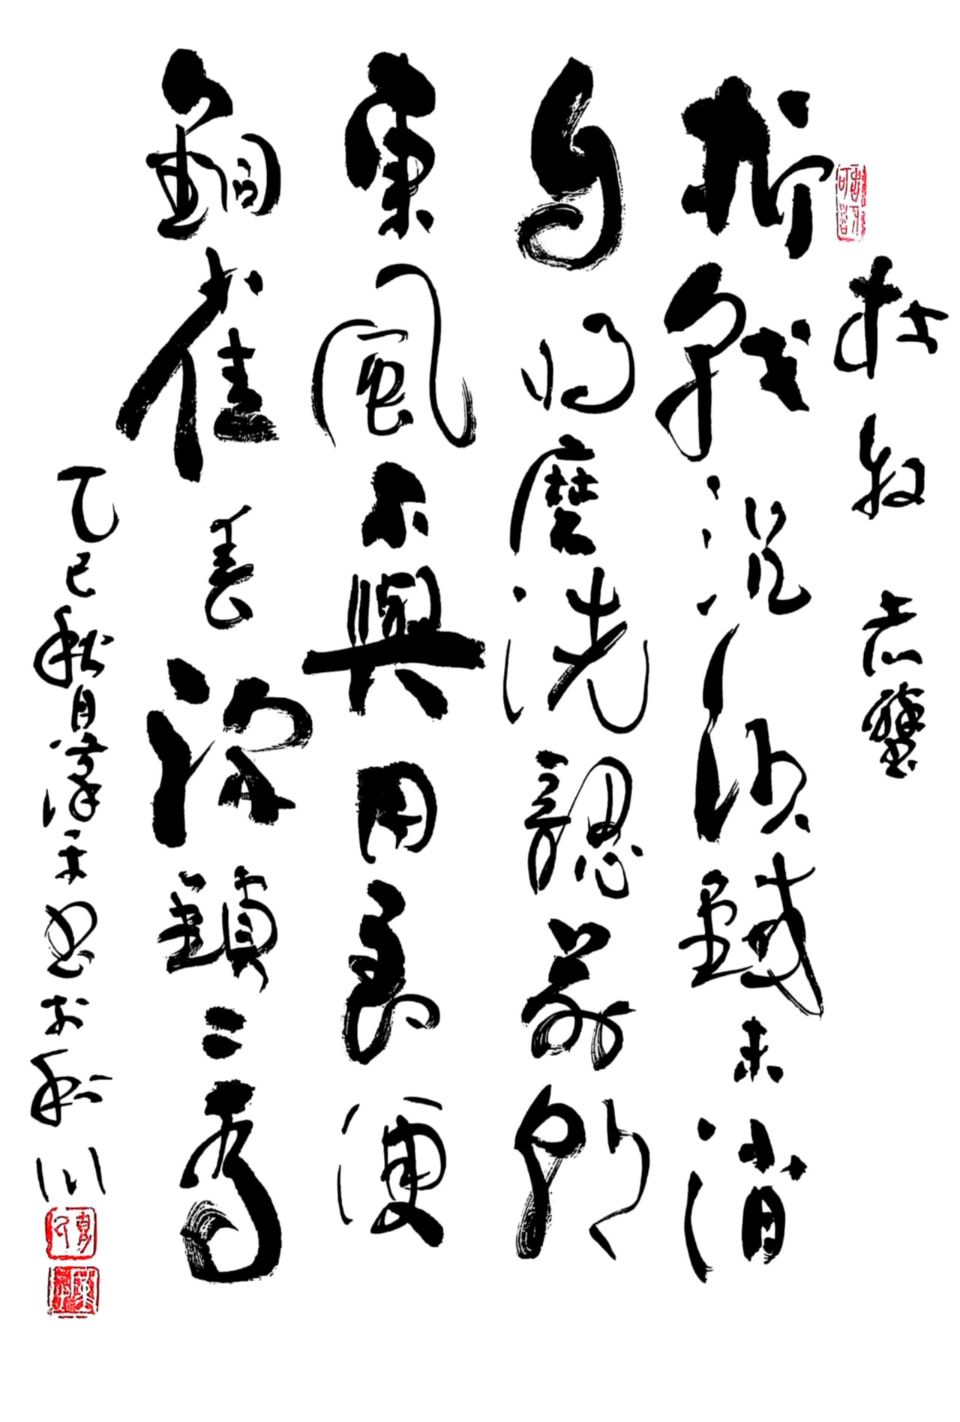 杜牧 赤壁
折戟沉沙鐵未消
自將磨洗認前朝
東風不與周郎便
銅雀春深鎖二喬
乙巳秋月平书於利川